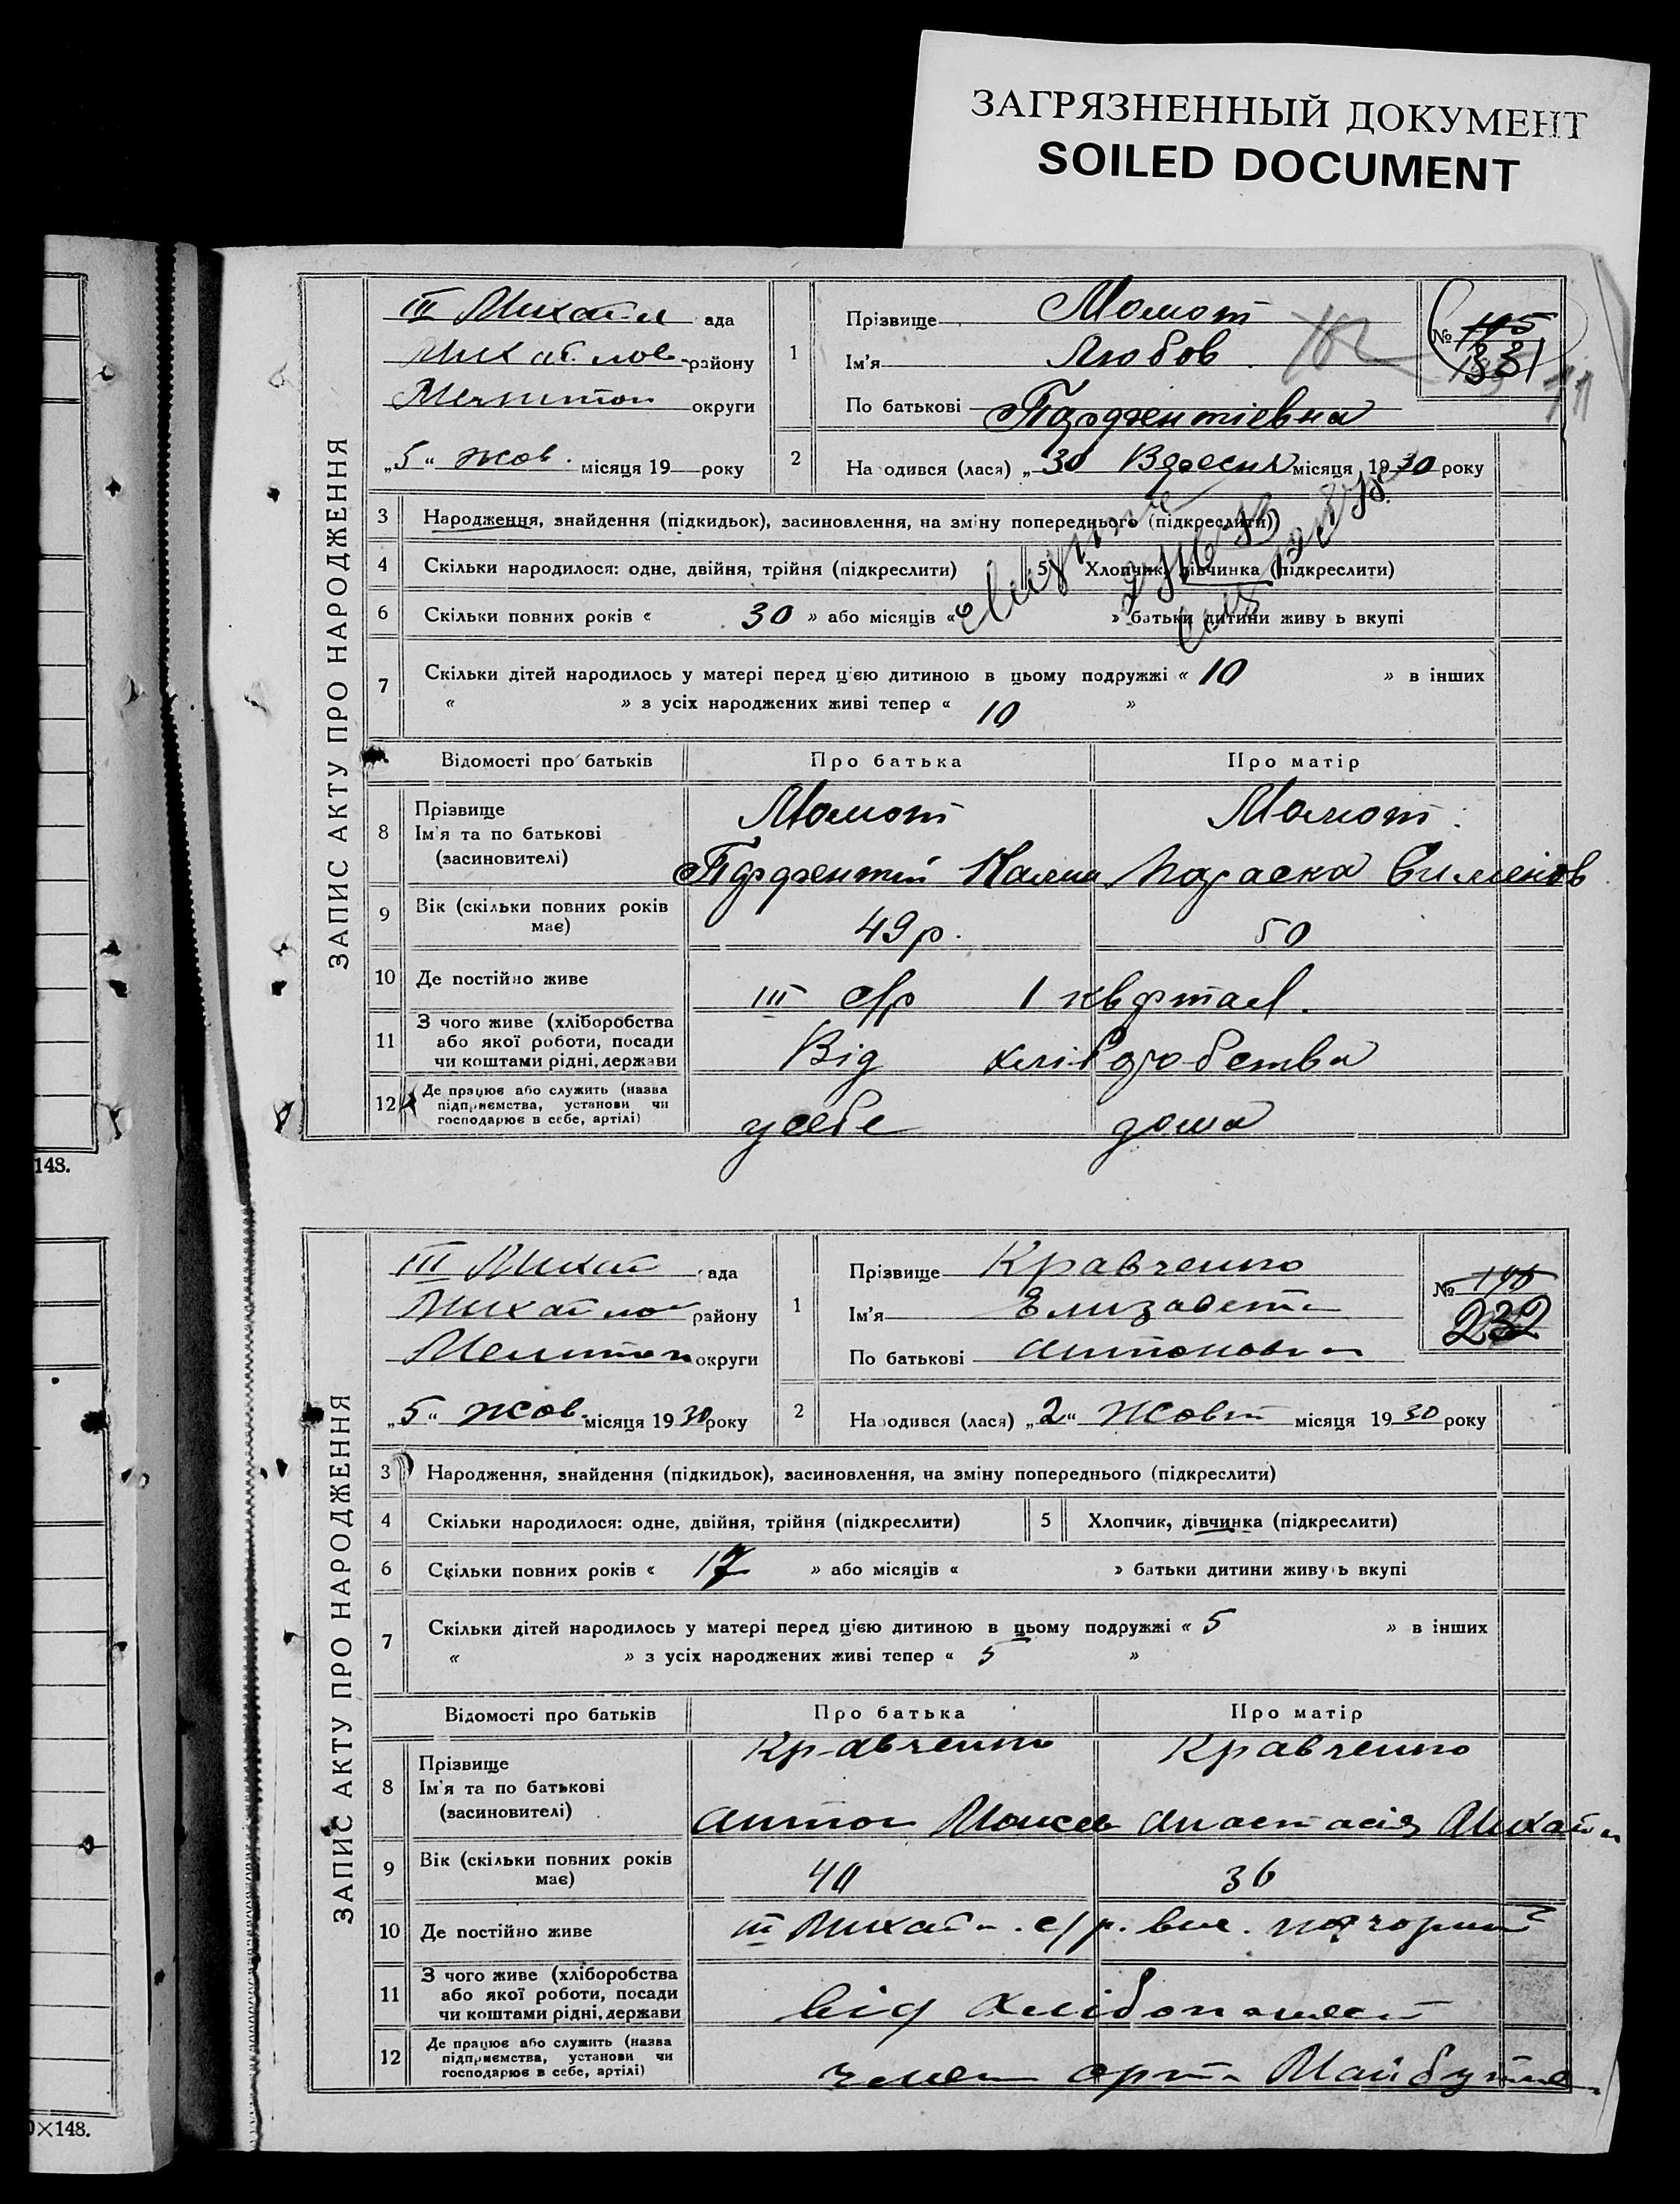 ЗАГРЯЗНЕННЫЙ ДОКУМЕНТ
SOILED DOCUMENT
ЗАПИС АКТУ ПРО НАРОДЖЕННЯ
III Михайл ада
Михайлов району
Мелитоп округи
„5“ жов. місяця 19 року
1
Прізвище Момот
Ім'я Любов
По батькові Парфентіевна
№ 331
2
На одився (лася) „30 Вересня місяця 1930 року
3 Народження, знайдення (підкидьок), засиновлення, на зміну попереднього (підкреслити)
4 Скільки народилося: одне, двійня, трійня (підкреслити) 5 Хлопчик, дівчинка (підкреслити)
6 Скільки повних років « 30 » або місяців « » батьки дитини живу ь вкупі
7 Скільки дітей народилось у матері перед цією дитиною в цьому подружжі « 10 » в інших
« » з усіх народжених живі тепер « 10 »
Відомості про батьків Про батька Про матір
8 Прізвище
Ім'я та по батькові
(засиновителі)
Момот Момот
Парфентій Параска
9 Вік (скільки повних років
має)
49 р. 50
10 Де постійно живе III с/р 1 квартал.
11 З чого живе (хліборобства
або якої роботи, посади
чи коштами рідні, держави
Від хліборобства
12 Де працює або служить (назва
підприємства, установи чи
господарює в себе, артілі)
у себе дома
148.
ЗАПИС АКТУ ПРО НАРОДЖЕННЯ
III Михай ада
Михайлов району
Мелитоп округи
„5“ жов. місяця 1930 року
1
Прізвище Кравченко
Ім'я Елизавета
По батькові Антоновна
№ 232
2
На одився (лася) „2“ Жовт місяця 1930 року
3 Народження, знайдення (підкидьок), засиновлення, на зміну попереднього (підкреслити)
4 Скільки народилося: одне, двійня, трійня (підкреслити) 5 Хлопчик, дівчинка (підкреслити)
6 Скільки повних років « 17 » або місяців « » батьки дитини живу ь вкупі
7 Скільки дітей народилось у матері перед цією дитиною в цьому подружжі « 5 » в інших
« » з усіх народжених живі тепер « 5 »
Відомості про батьків Про батька Про матір
8 Прізвище
Ім'я та по батькові
(засиновителі)
Кравченко Кравченко
Антон Моисев Анастасія Михайл
9 Вік (скільки повних років
має)
40 36
10 Де постійно живе III Михайл. с/р.
11 З чого живе (хліборобства
або якої роботи, посади
чи коштами рідні, держави
від
12 Де працює або служить (назва
підприємства, установи чи
господарює в себе, артілі)
член арт. Майбутнє
0×148.